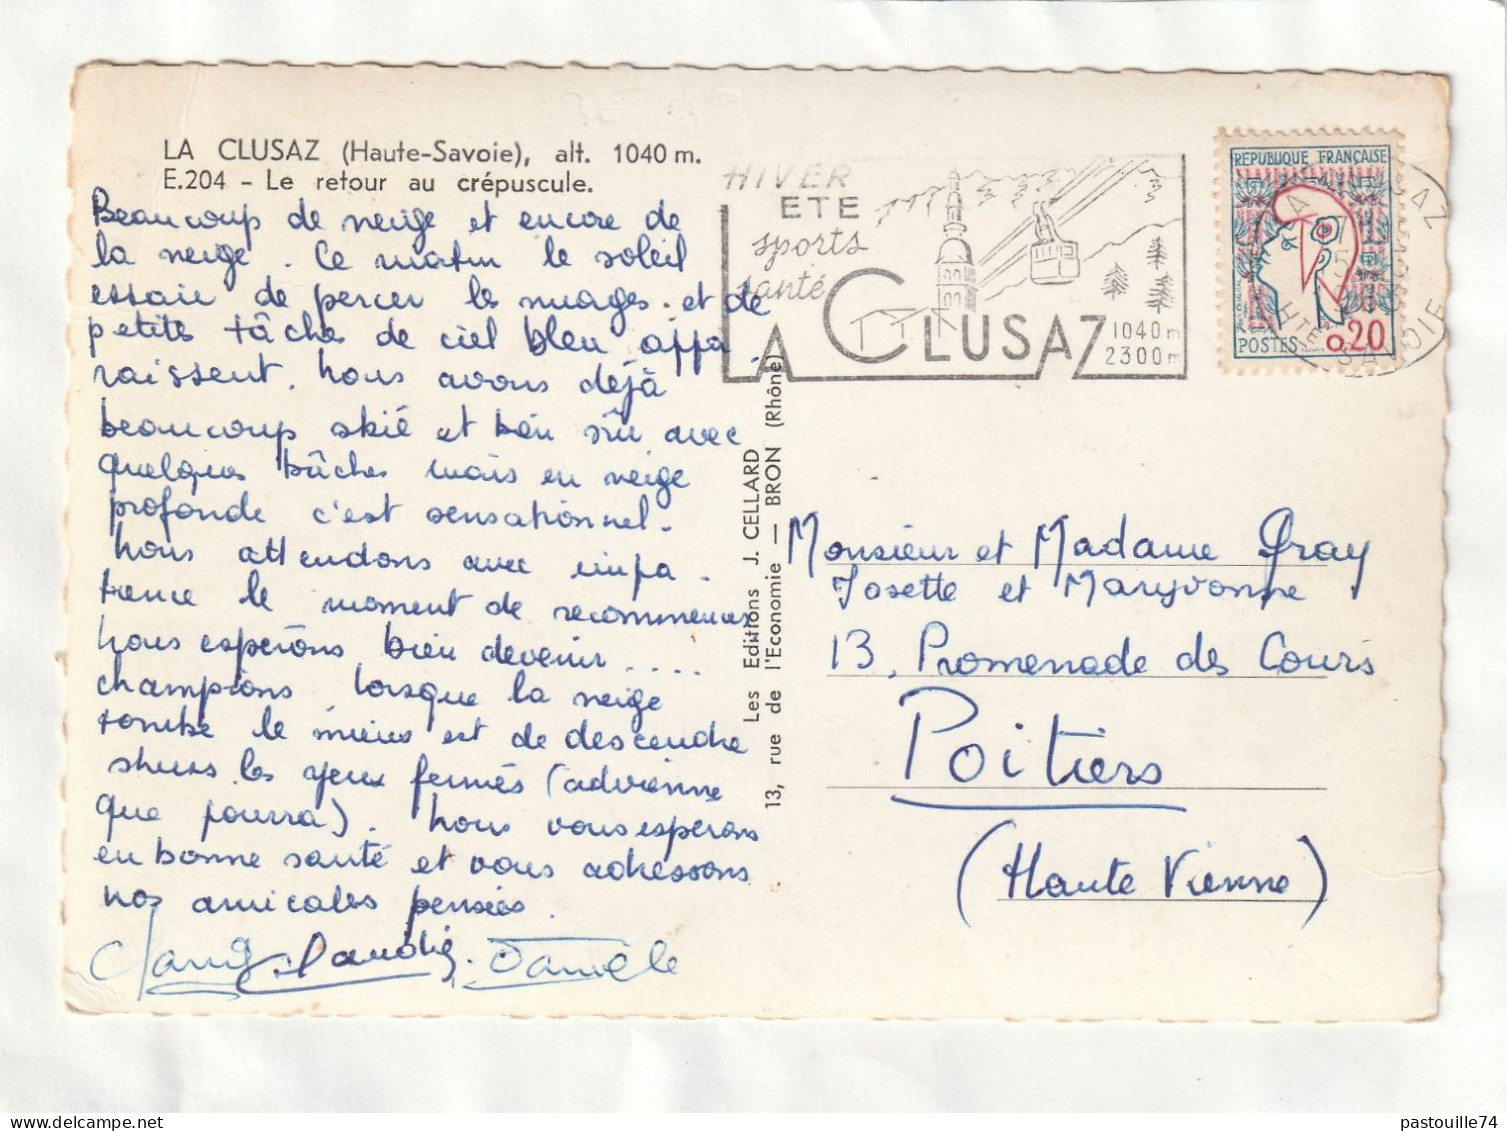 LA CLUSAZ (Haute-Savoie), alt. 1040 m.
E.204 - Le retour au crépuscule.
Beaucoup de neige et encore de
la neige. Ce matin le soleil
essaie de percer les nuages. et de
petites tâches de ciel bleu appa
raissent. Nous avons déjà
beaucoup skié et bien sûr avec
quelques bûches mais en neige
profonde c'est sensationnel.
Nous attendons avec impa.
tience le moment de recommencer
Nous espérons bien devenir ....
champions lorsque la neige
tombe le mieux est de descendre
shuss les yeux fermés (advienne
que pourra). Nous vous espérons
en bonne santé et vous adressons
nos amicales pensées.
Claudie. Danièle
Les Editions J. CELLARD
13, rue de l'Economie — BRON (Rhône)
HIVER
ETE
sports
santé
LA CLUSAZ
1040 m
2300 m
RÉPUBLIQUE FRANÇAISE
POSTES 0,20
Monsieur et Madame Gray
Josette et Maryvonne
13, Promenade des Cours
Poitiers
(Haute Vienne)
pastouille74